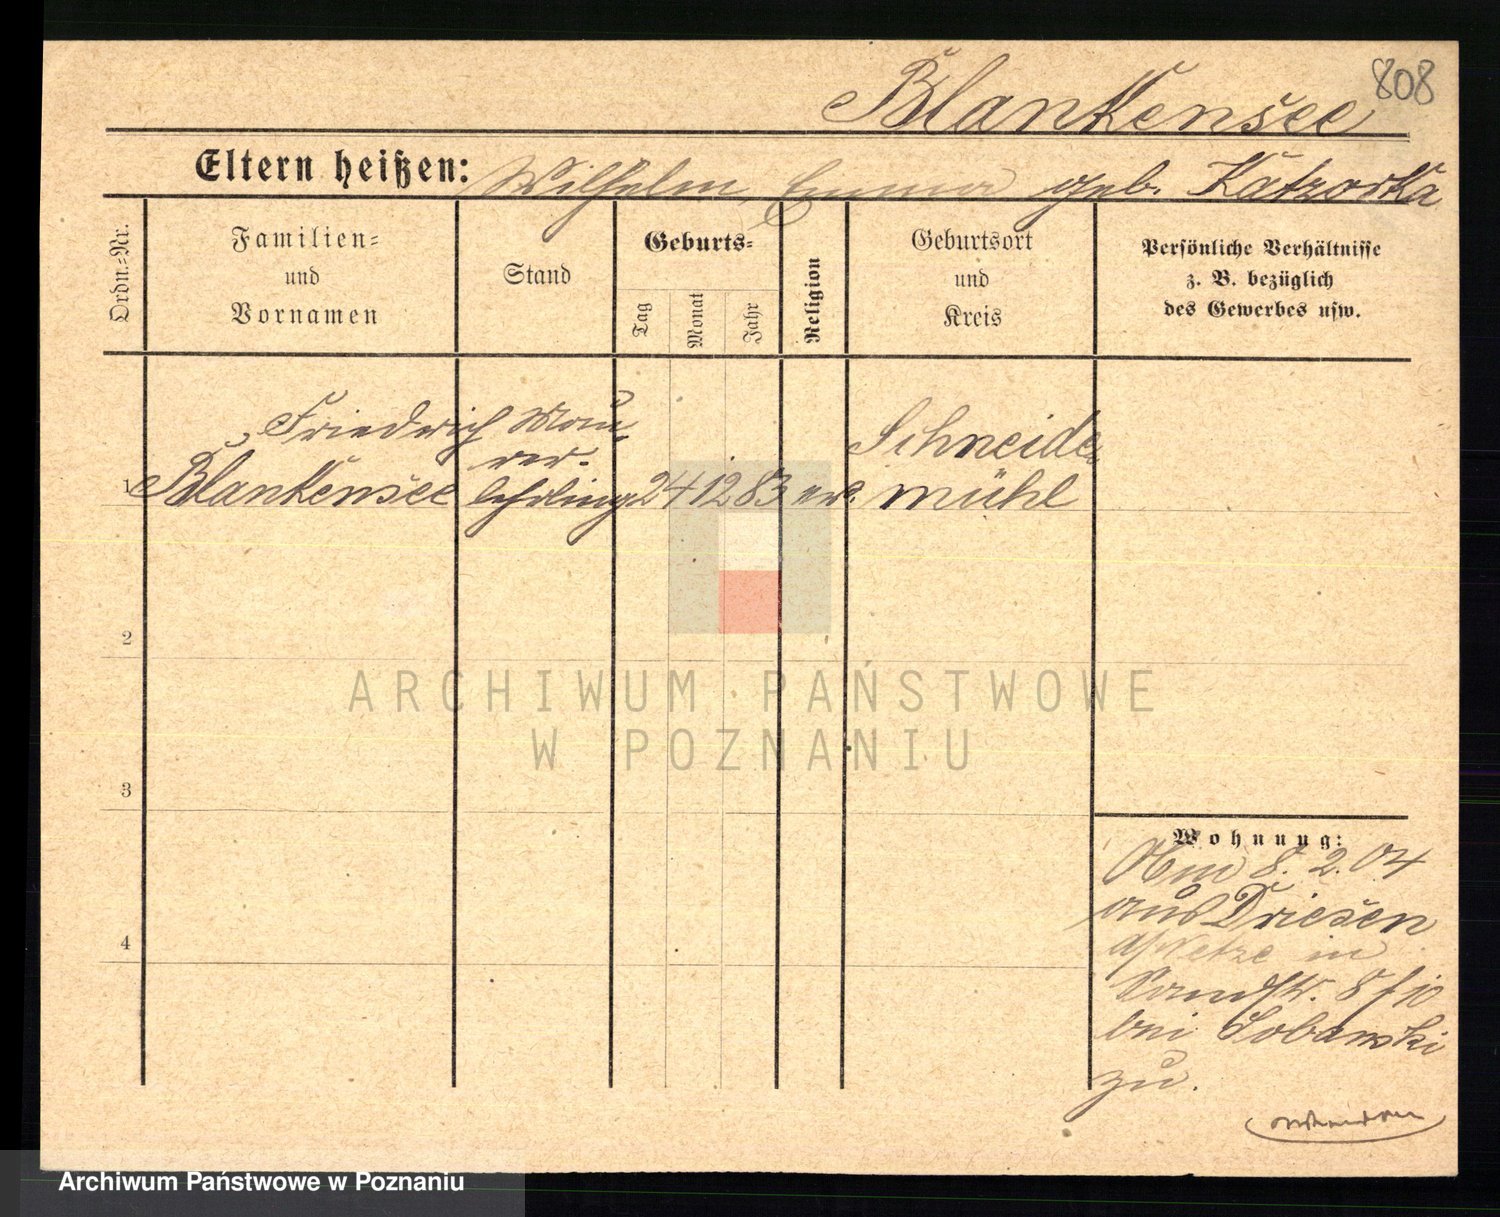 808
Blankensee
Eltern heißen: Wilhelm, Emma geb. Katzorka
Ordn.-Nr.
Familien-
und
Vornamen
Stand
Geburts-
Tag
Monat
Jahr
Religion
Geburtsort
und
Kreis
Persönliche Verhältnisse
z. B. bezüglich
des Gewerbes usw.
Friedrich Mau- Schneide-
rer-
1 Blankensee lehrling 24 12 83 ev. mühl
2
ARCHIWUM PAŃSTWOWE
W POZNANIU
3
Wohnung:
8.2.04
aus Driesen
a/Netze in
8 f 10
bei Lobanski
zu.
4
Archiwum Państwowe w Poznaniu